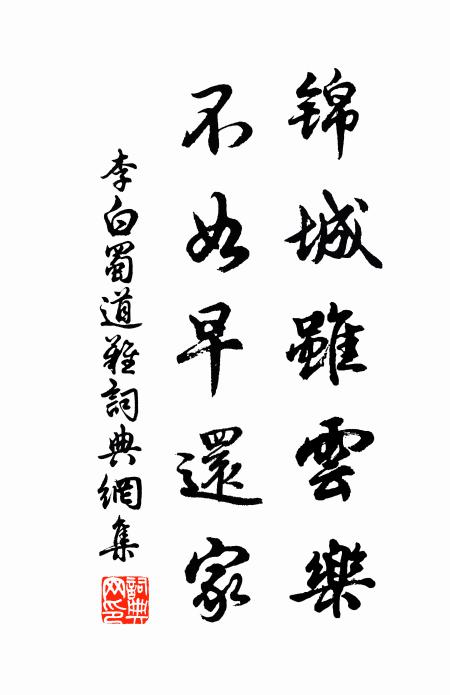 錦城雖雲樂
不如早還家
李白蜀道難詞典網集
詞典